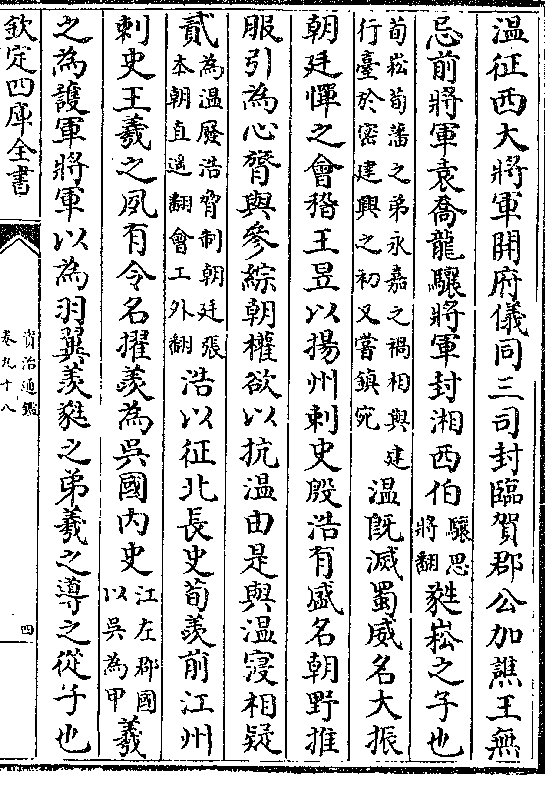 温征西大將軍開府儀同三司封臨賀郡公加譙王無
忌前將軍袁喬龍驤將軍封湘西伯驤思將翻蕤崧之子也
荀崧荀藩之弟永嘉之禍相與建行臺於密建興之初又嘗鎮宛温既滅蜀威名大振
朝廷憚之會稽王昱以揚州刺史殷浩有盛名朝野推
服引為心膂與參綜朝權欲以抗温由是與温寖相疑
貳為温廢浩脅制朝廷張本朝直遥翻會工外翻浩以征北長史荀羨前江州
刺史王羲之夙有令名擢羨為吳國内史江左郡國以吳為甲羲
之為護軍將軍以為羽翼羨蕤之弟羲之導之從子也
欽定四庫全書
資治通鑑
卷九十八
四